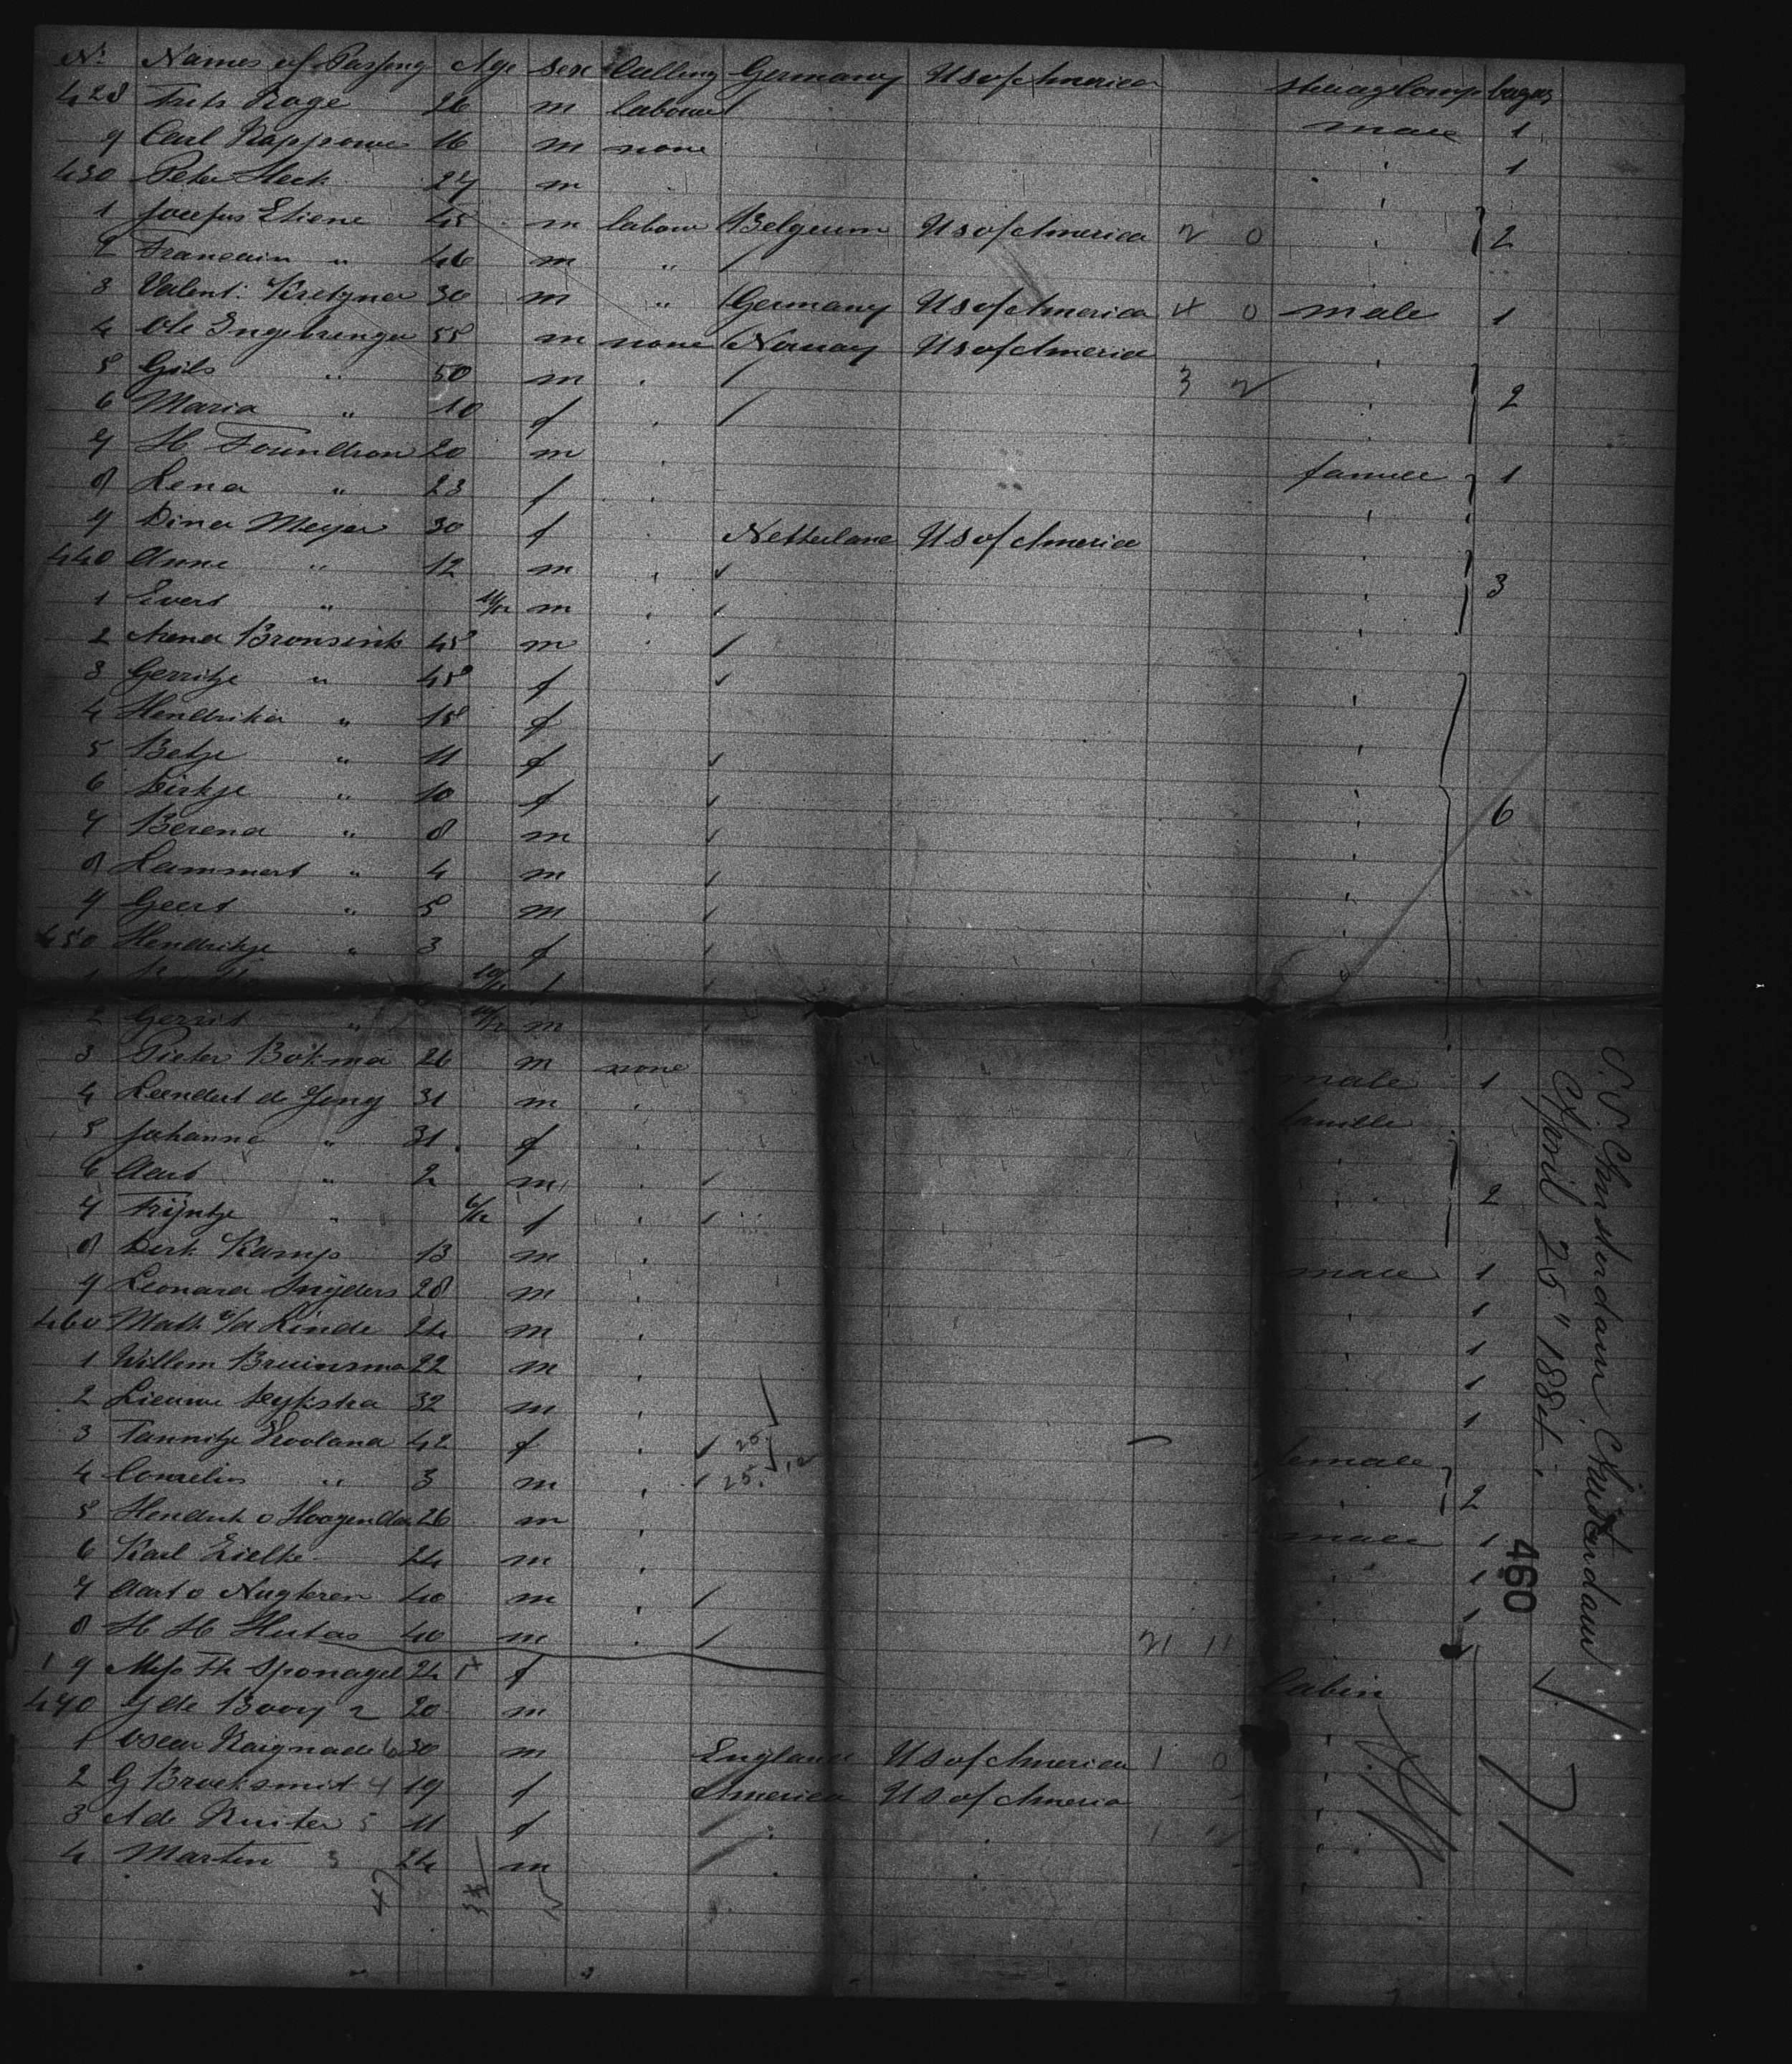 No Names of Passeng Age Sex Calling Germany US of America steerag Comp bagag
428 Frits Rage 26 m labour male 1
9 Carl Rappouw 16 m none " 1
430 Peter Heck 27 m "
1 Josefus Etiene 45 m labour Belgium US of America 2 0 " 2
2 Francain " 46 m "
3 Valent. Kretzner 30 m " Germany US of America 4 0 male 1
4 Ole 55 m none Norway US of America
5 Gils " 50 m 3 2 2
6 Maria " 10 f
7 H Foundron 20 m famile 1
8 Lena " 23 f
9 Dina Meyer 30 f Netherland US of America
440 Anne " 12 m 3
1 Evert " 11/12 m
2 Arend Bronsink 45 m
3 Gerritje " 45 f
4 Hendrika " 15 f
5 Betje " 11 f
6 Dirkje " 10 f 6
7 Berend " 8 m
8 Lammert " 4 m
9 Geert " 5 m
450 Hendrikje " 3 f
1 10/12 f
2 Gerrit " 10/12 m
3 Pieter Bokma 26 m none male 1
4 Leendert de Jong 31 m famille
5 Johanna " 31 f
6 Aart " 2 m 2
7 Trijntje " 6/12 f
8 Dirk Kamp 13 m male 1
9 Leonard Snijders 28 m 1
460 Math v/d Linde 24 m 1
1 Willem Bruinsma 22 m 1
2 Lieuwe Dykstra 32 m 1
3 Tannitje Roolana 42 f 25 female
4 Cornelius " 3 m 25 2
5 Hendrik v Hoogendam 26 m male 1
6 Karl Zielke 24 m 1
7 Aart v Nugteren 40 m 1
8 H H Hutas 40 m 21 11
9 Miss Th Sponagel 24 f Cabin
470 G de Booy 2 20 m
1 Oscar Raignade 6 30 m England US of America 1 0
2 G Broeksmit 4 19 f America US of America
3 A de Ruiter 5 11 f
4 Marten 3 24 m
47
S.S. Amsterdam, Amsterdam
April 25" 1884.
460
71